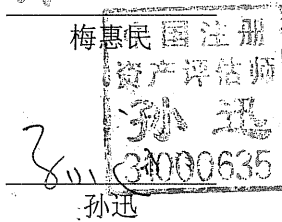 梅惠民
中国注册
资产评估师
孙迅
31000635
孙迅